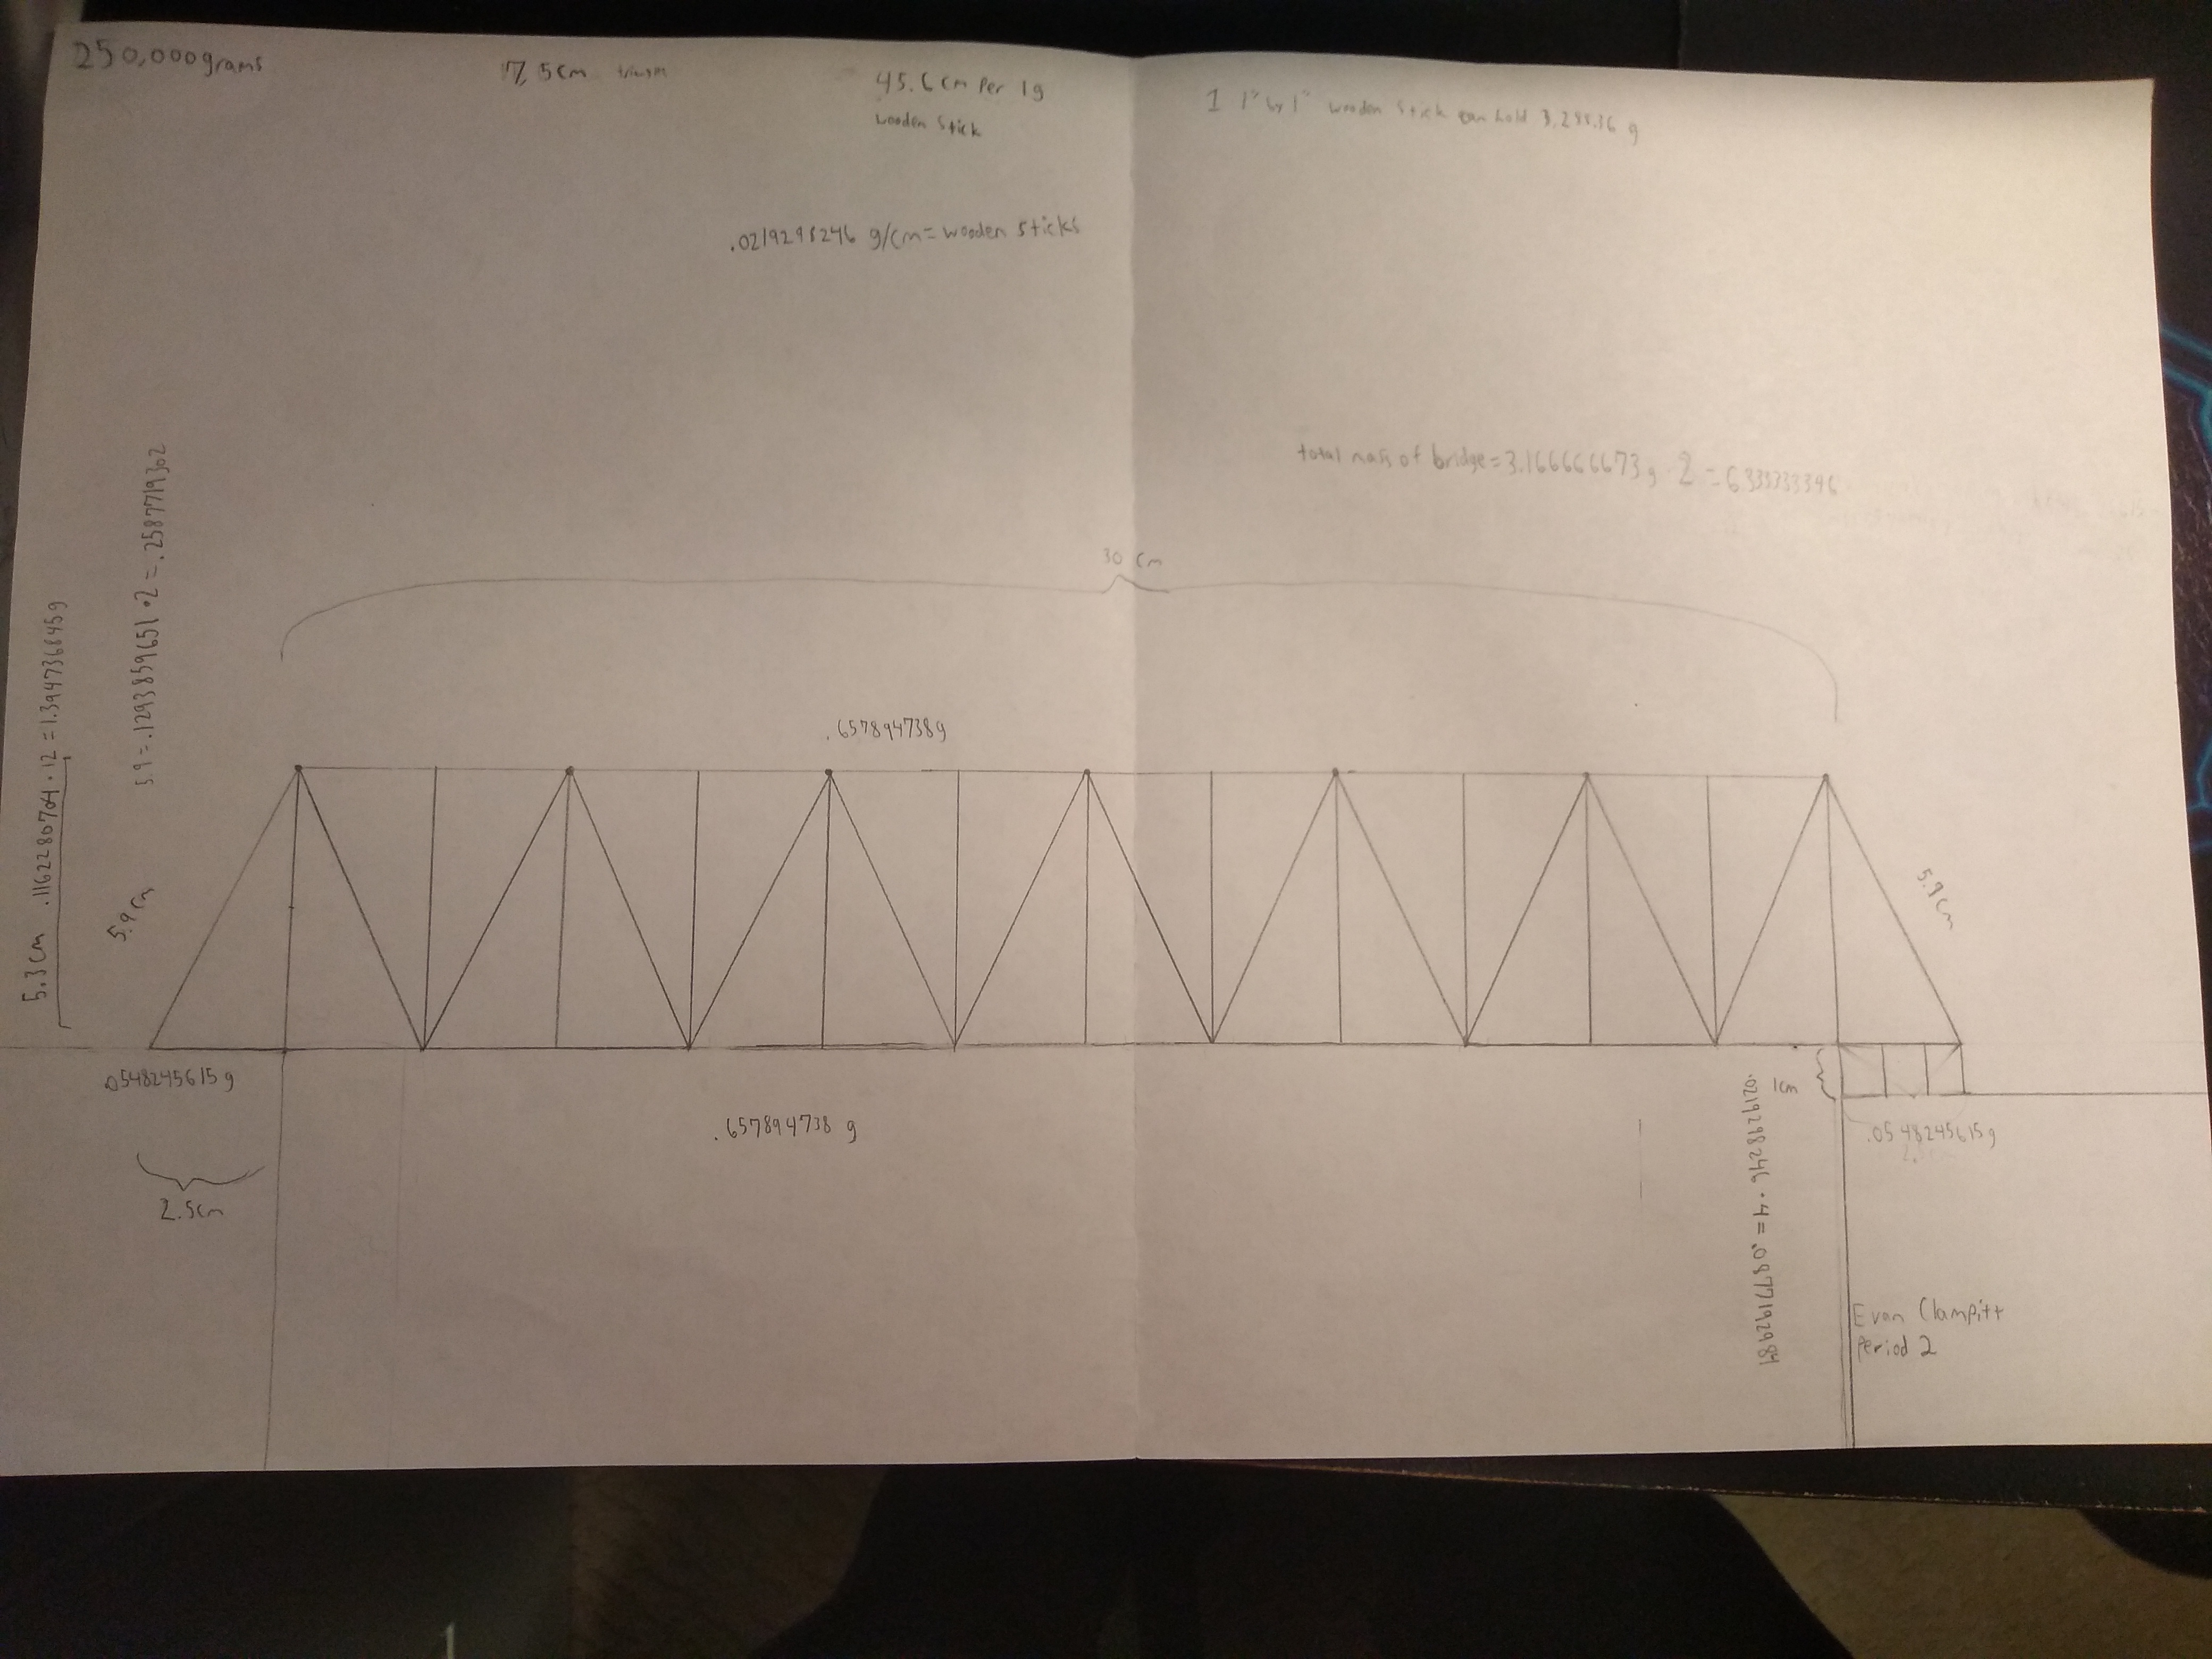 250,000grams
7.5cm
45.6 cm Per 1g
wooden Stick
1 1" by 1" wooden Stick can hold
g
.0219298246 g/cm= wooden sticks
total mass of bridge=3.166666673g · 2 =6.333333346
30 cm
5.3cm .1162280704 · 12 = 1.394736845g
5.9 = .1293859651 · 2 = .2587719302
.657894738g
5.9 cm
5.9 cm
.0548245615g
2.5cm
.657894738 g
1cm
.0219298246 · 4 = .0877192984
.0548245615g
Evan Clampitt
Period 2